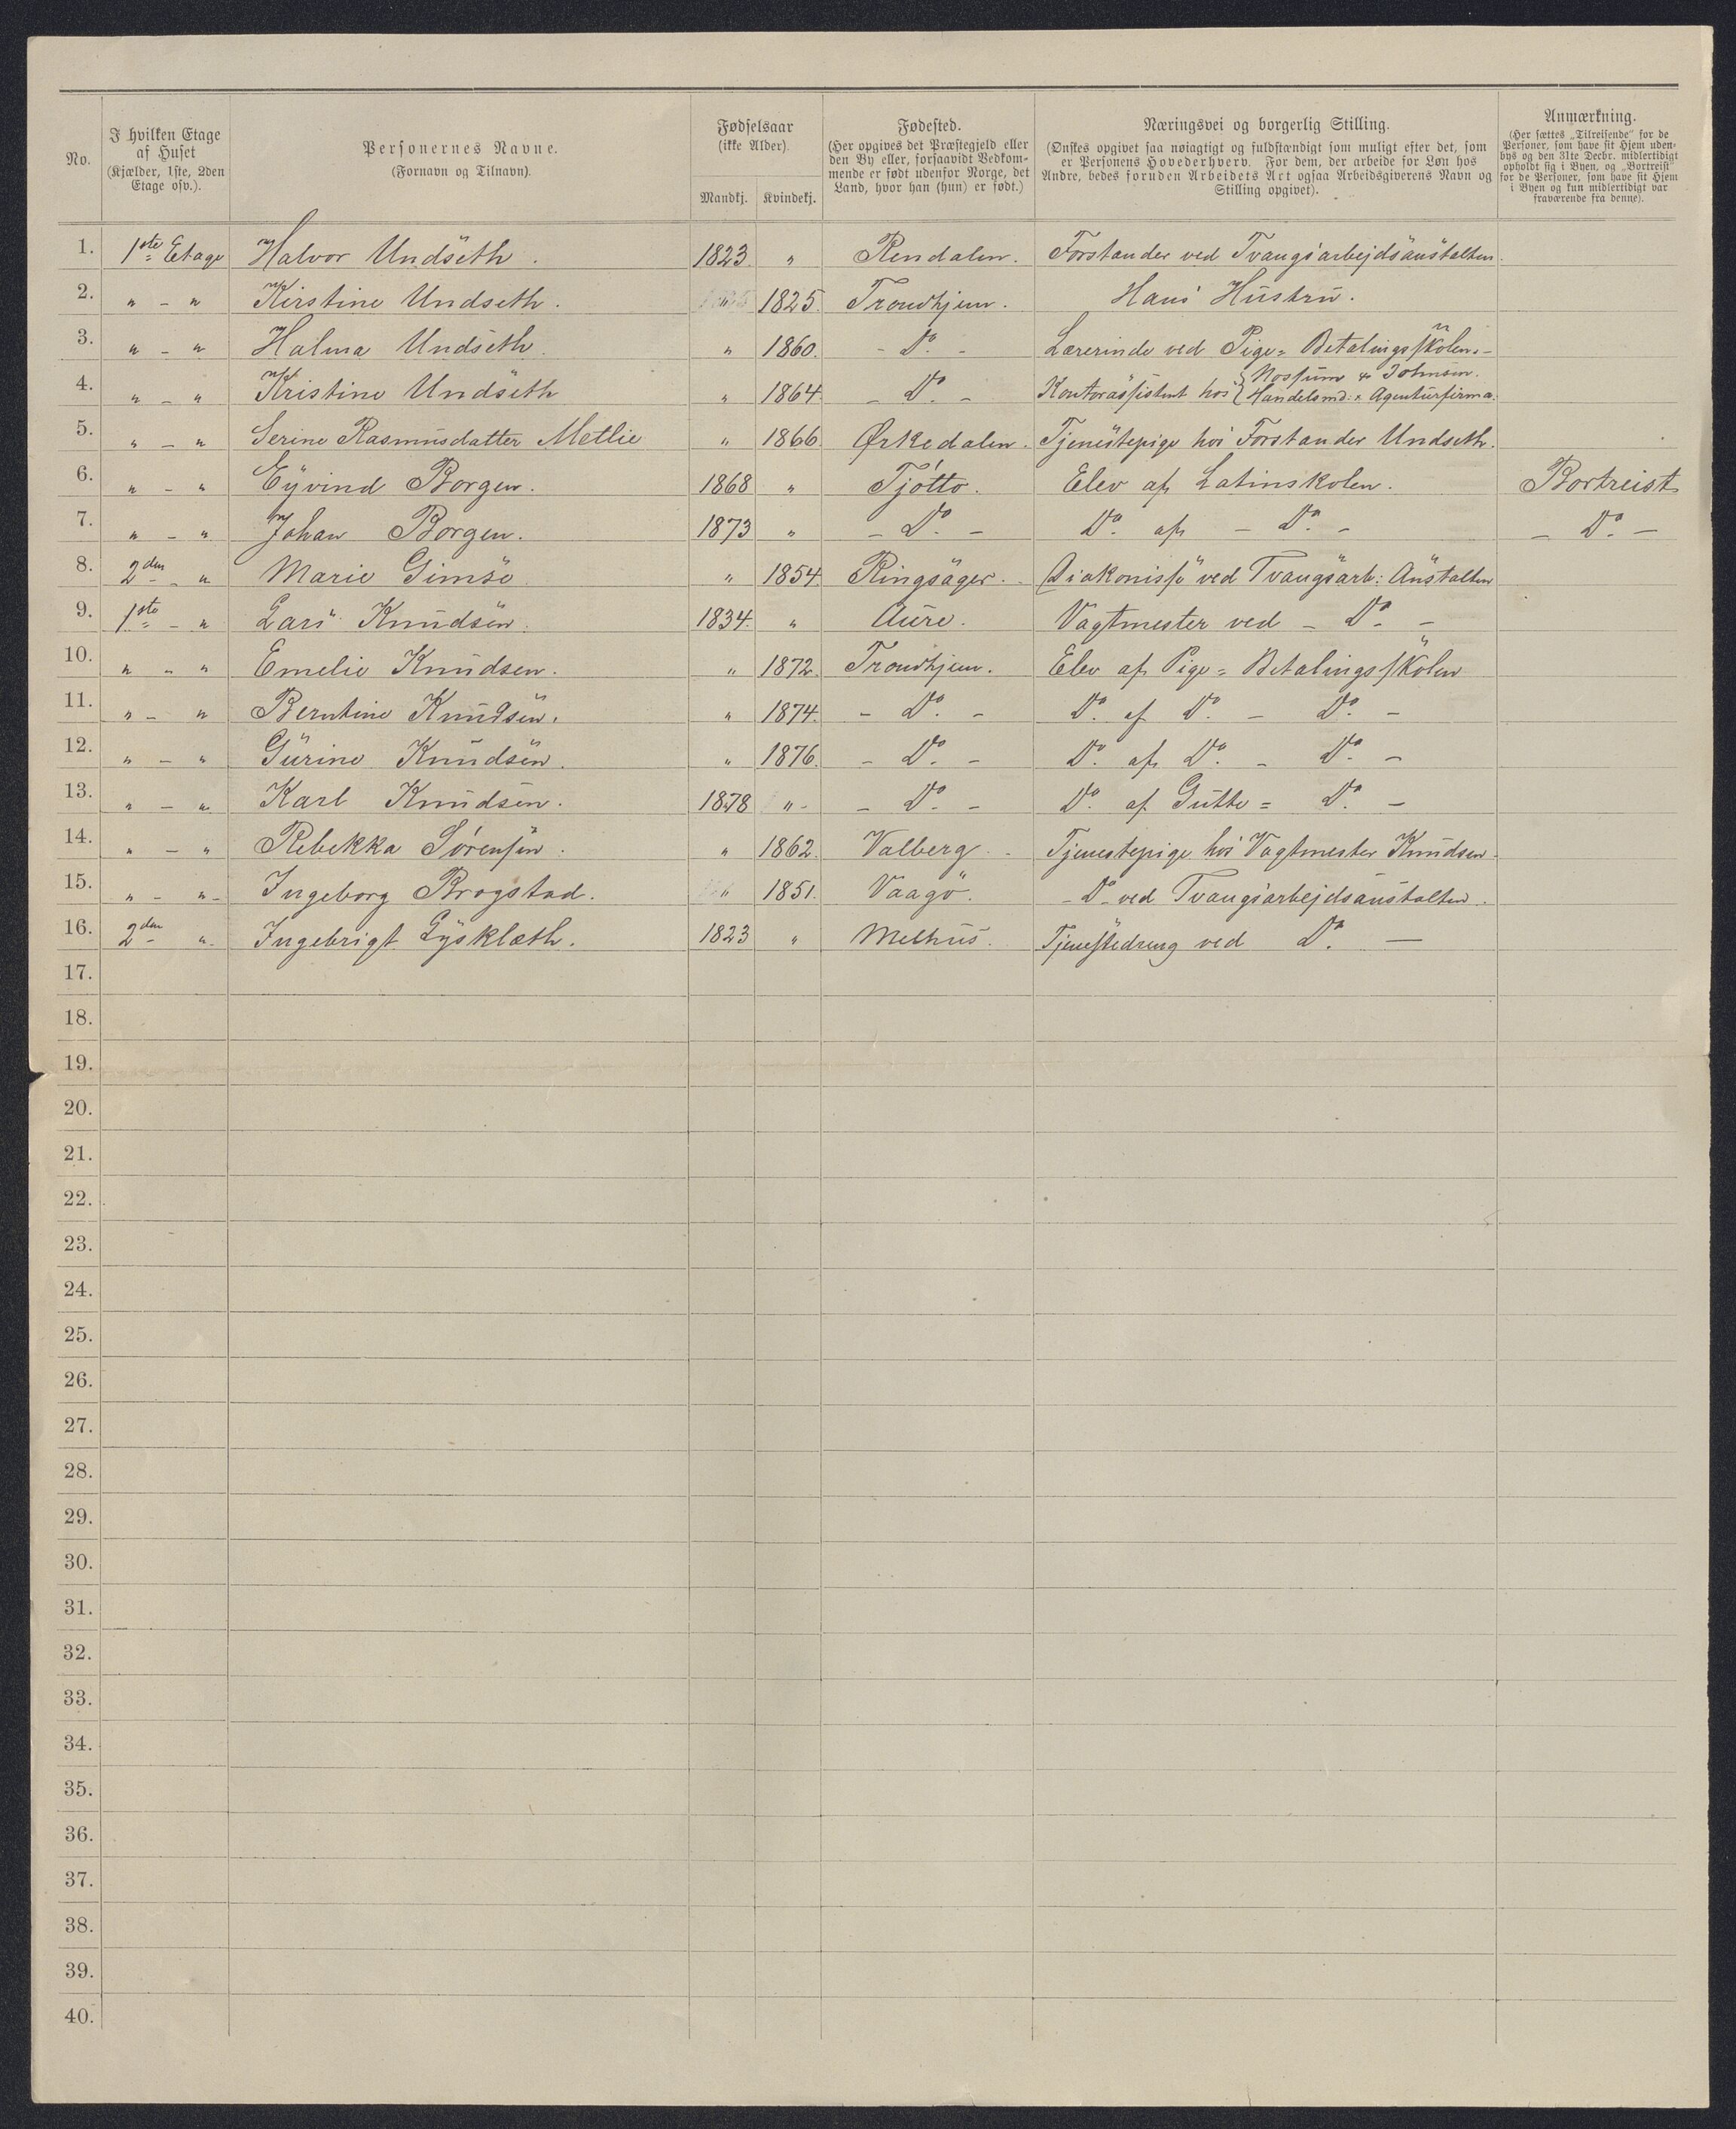 No.
I hvilken Etage af Huset (Kjælder, 1ste, 2den Etage osv.).
Personernes Navne. (Fornavn og Tilnavn).
Fødselsaar (ikke Alder).
Mandkj. Kvindekj.
Fødested. (Her opgives det Præstegjeld eller den By eller, forsaavidt Vedkommende er født udenfor Norge, det Land, hvor han (hun) er født.)
Næringsvei og borgerlig Stilling. (Ønskes opgivet saa nøiagtigt og fuldstændigt som muligt efter det, som er Personens Hovederhverv. For dem, der arbeide for Løn hos Andre, bedes foruden Arbeidets Art ogsaa Arbeidsgiverens Navn og Stilling opgivet).
Anmærkning. (Her sættes „Tilreisende" for de Personer, som have sit Hjem udenbys og den 31te Decbr. midlertidigt opholdt sig i Byen, og „Bortreist" for de Personer, som have sit Hjem i Byen og kun midlertidigt var fraværende fra denne).
1. 1ste Etage Halvor Undseth. 1823 " Rendalen. Forstander ved Tvangsarbejdsanstalten.
2. " - " Kirstine Undseth. " 1825. Trondhjem. Hans Hustru.
3. " - " Halma Undseth. " 1860. - Do. - Lærerinde ved Pige= Betalingsskolen. -
4. " - " Kristine Undseth " 1864 - Do. - Kontorassistent hos { Nossum & Johnsen. Handelsmd: & Agenturfirma.
5. " - " Serine Rasmusdatter Metlie " 1866. Ørkedalen. Tjenestepige hos Forstander Undseth.
6. " - " Eyvind Borgen. 1868 " Tjøtto. Elev af Latinskolen. Bortreist
7. " - " Johan Borgen. 1873 " - Do. - Do. af - Do. - - Do. -
8. 2den - " Marie Gimse " 1854. Ringsager. Diakonisse ved Tvangsarb: Anstalten
9. 1ste - " Lars Knudsen. 1834. " Aure. Vagtmester ved - Do. -
10. " - " Emelie Knudsen. " 1872. Trondhjem. Elev af Pige= Betalingsskolen
11. " - " Berntine Knudsen. " 1874. - Do. - Do. af Do. - Do. -
12. " - " Gurine Knudsen. " 1876. - Do. - Do. af Do. - Do. -
13. " - " Karl Knudsen. 1878 " - Do. - Do. af Gutte= Do. -
14. " - " Rebekka Sørensen. " 1862. Valberg. Tjenestepige hos Vagtmester Knudsen.
15. " - " Ingeborg Brogstad. " 1851. Vaagö. - Do - ved Tvangsarbejdsanstalten.
16. 2den " Ingebrigt Lysklæth. 1823 " Melhus. Tjenestedreng ved Do. -
17.
18.
19.
20.
21.
22.
23.
24.
25.
26.
27.
28.
29.
30.
31.
32.
33.
34.
35.
36.
37.
38.
39.
40.